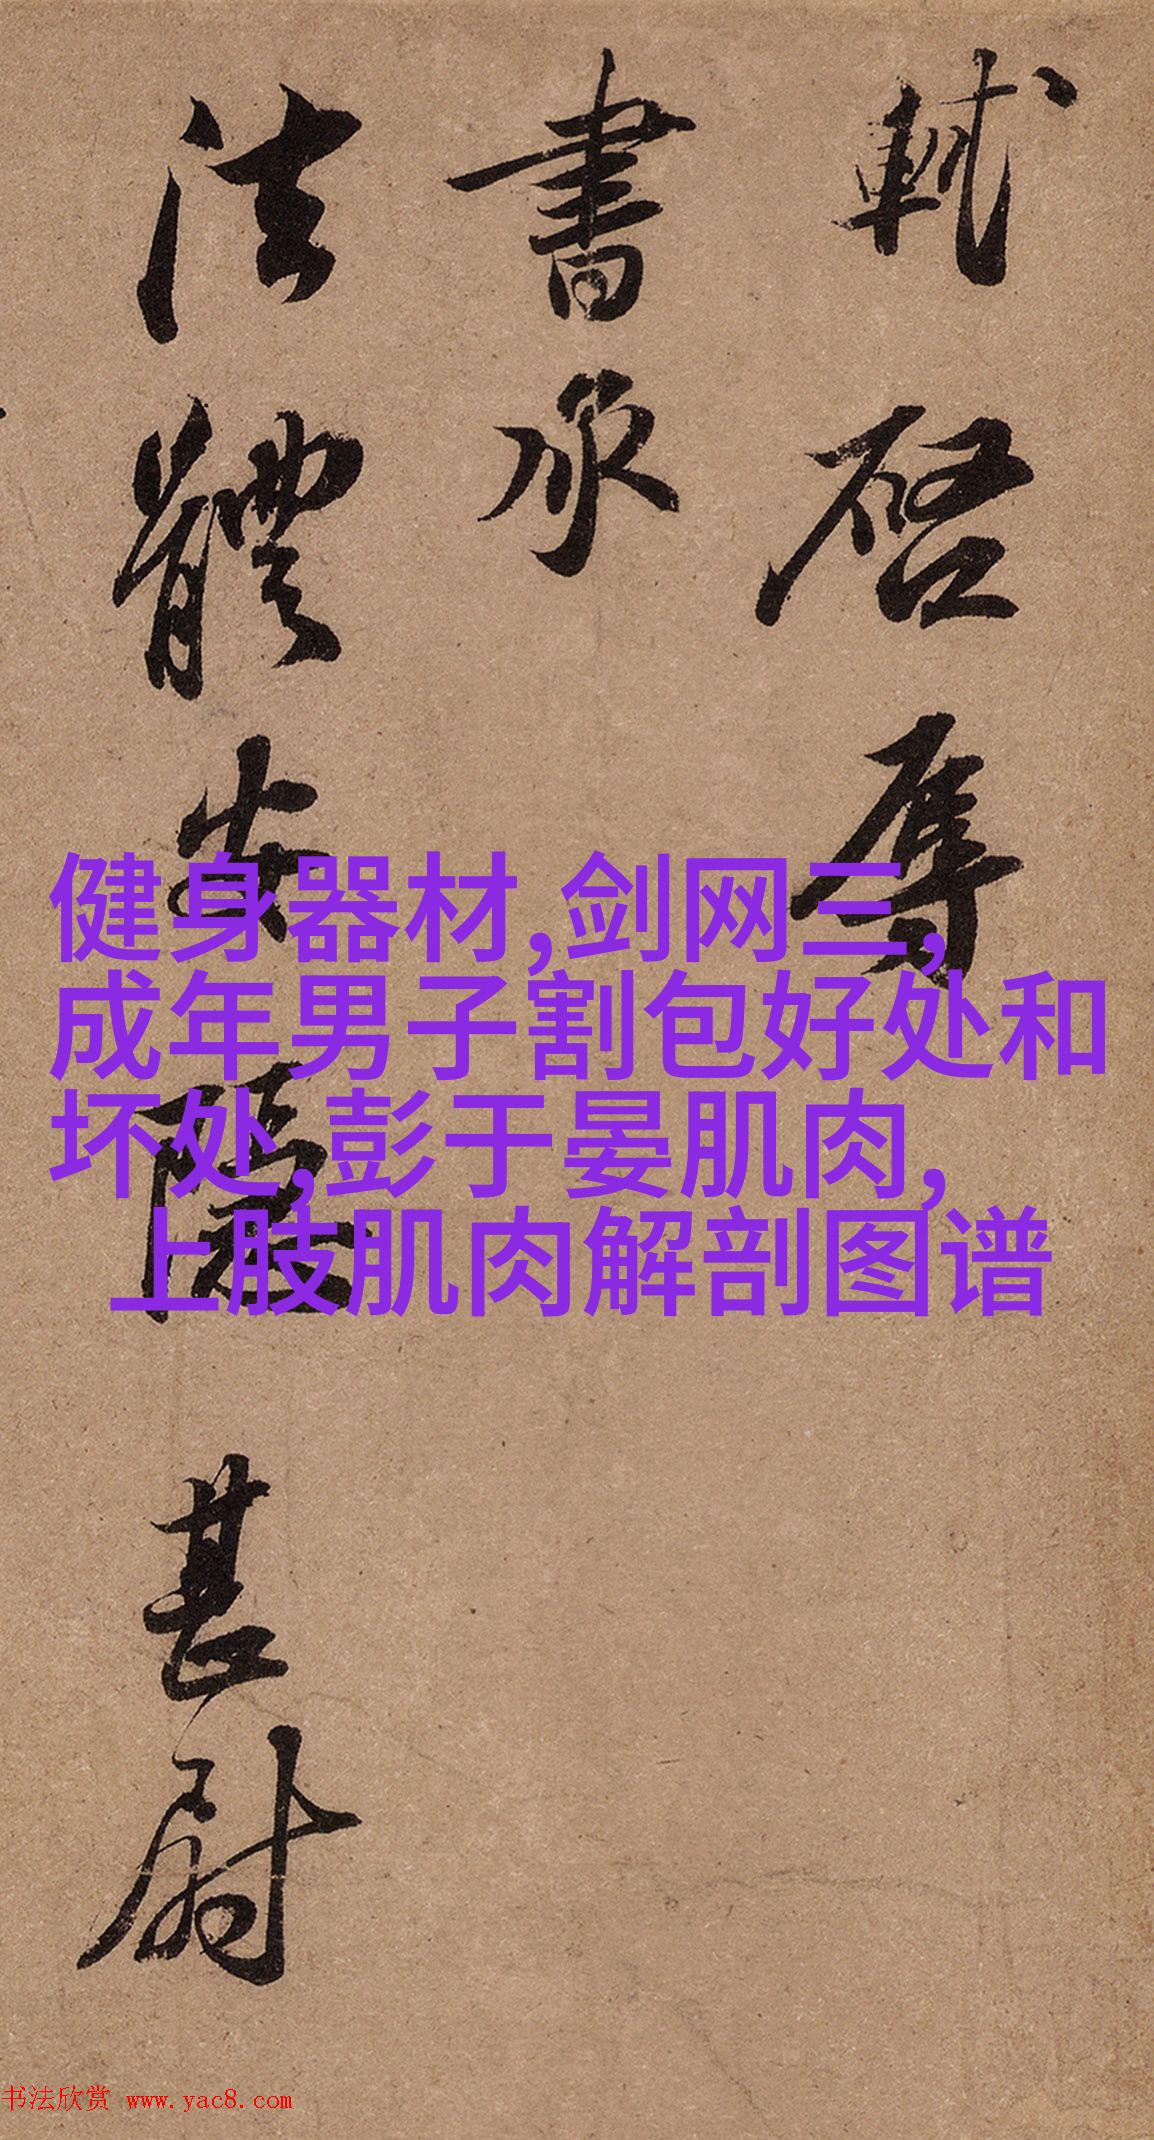 軾啓辱
書承
法體安隱甚尉
健身器材,剑网三,
成年男子割包好处和
坏处,彭于晏肌肉,
上肢肌肉解剖图谱
书法欣赏 www.yac8.com